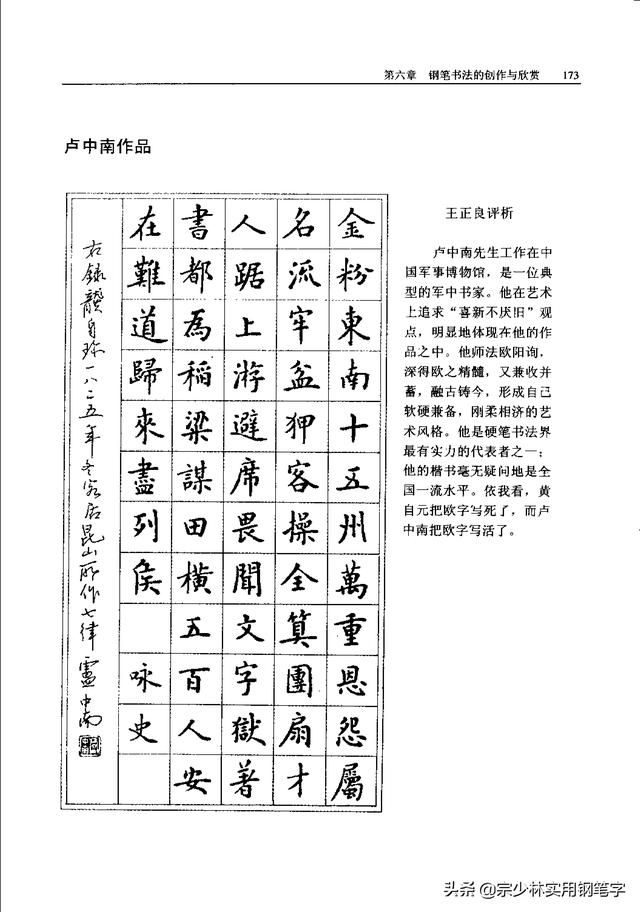 第六章 钢笔书法的创作与欣赏 173
卢中南作品
金粉東南十五州萬重恩怨屬
名流牢盆狎客操全算團扇才
人踞上游避席畏聞文字獄著
書都為稻粱謀田橫五百人安
在難道歸來盡列侯 咏史
右錄龔自珍一八二五年冬客居昆山所作七律 盧中南
王正良评析
卢中南先生工作在中
国军事博物馆，是一位典
型的军中书家。他在艺术
上追求“喜新不厌旧”观
点，明显地体现在他的作
品之中。他师法欧阳询，
深得欧之精髓，又兼收并
蓄，融古铸今，形成自己
软硬兼备，刚柔相济的艺
术风格。他是硬笔书法界
最有实力的代表者之一；
他的楷书毫无疑问地是全
国一流水平。依我看，黄
自元把欧字写死了，而卢
中南把欧字写活了。
头条 @宗少林实用钢笔字